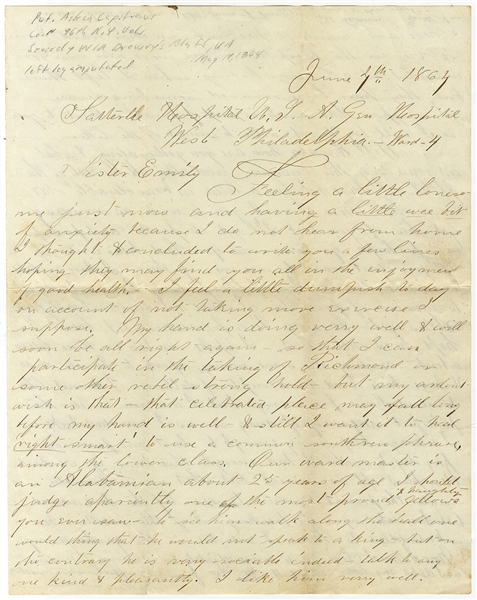 Pvt.
Co. H 96th N.Y. Vols.
Drewry's Bluff, VA
May 1864
left leg amputated
June 4th 1864
Satterlee Hospital U. S. A. Gen Hospital
West Philadelphia. - Ward - 4
Sister Emily Feeling a little loneso-
me just now and having a little wee bit
of anxiety because I do not hear from home
I thought & concluded to write you a few lines
hoping they may find you all in the injoyment
of good health. - I feel a little dumpish to day
on account of not taking more exercise I
suppose. My hand is doing verry well & will
soon be all right again - so that I can
participate in the taking of Richmond or
some other rebil strong hold - but my ardent
wish is that - that celebrated place may fall long
before my hand is well - & still I want it to heal
right smart to use a common southren phrase,
among the lower class. Our ward master is
an Alabamian about 25 years of age I should
judge apariently one of the most proud & haughty fellows
you ever saw - to see him walk along the hall one
would thing that he would not speak to a king - but on
the contrary he is very sociable indeed - talk to any
one kind & pleasantly. I like him verry well.